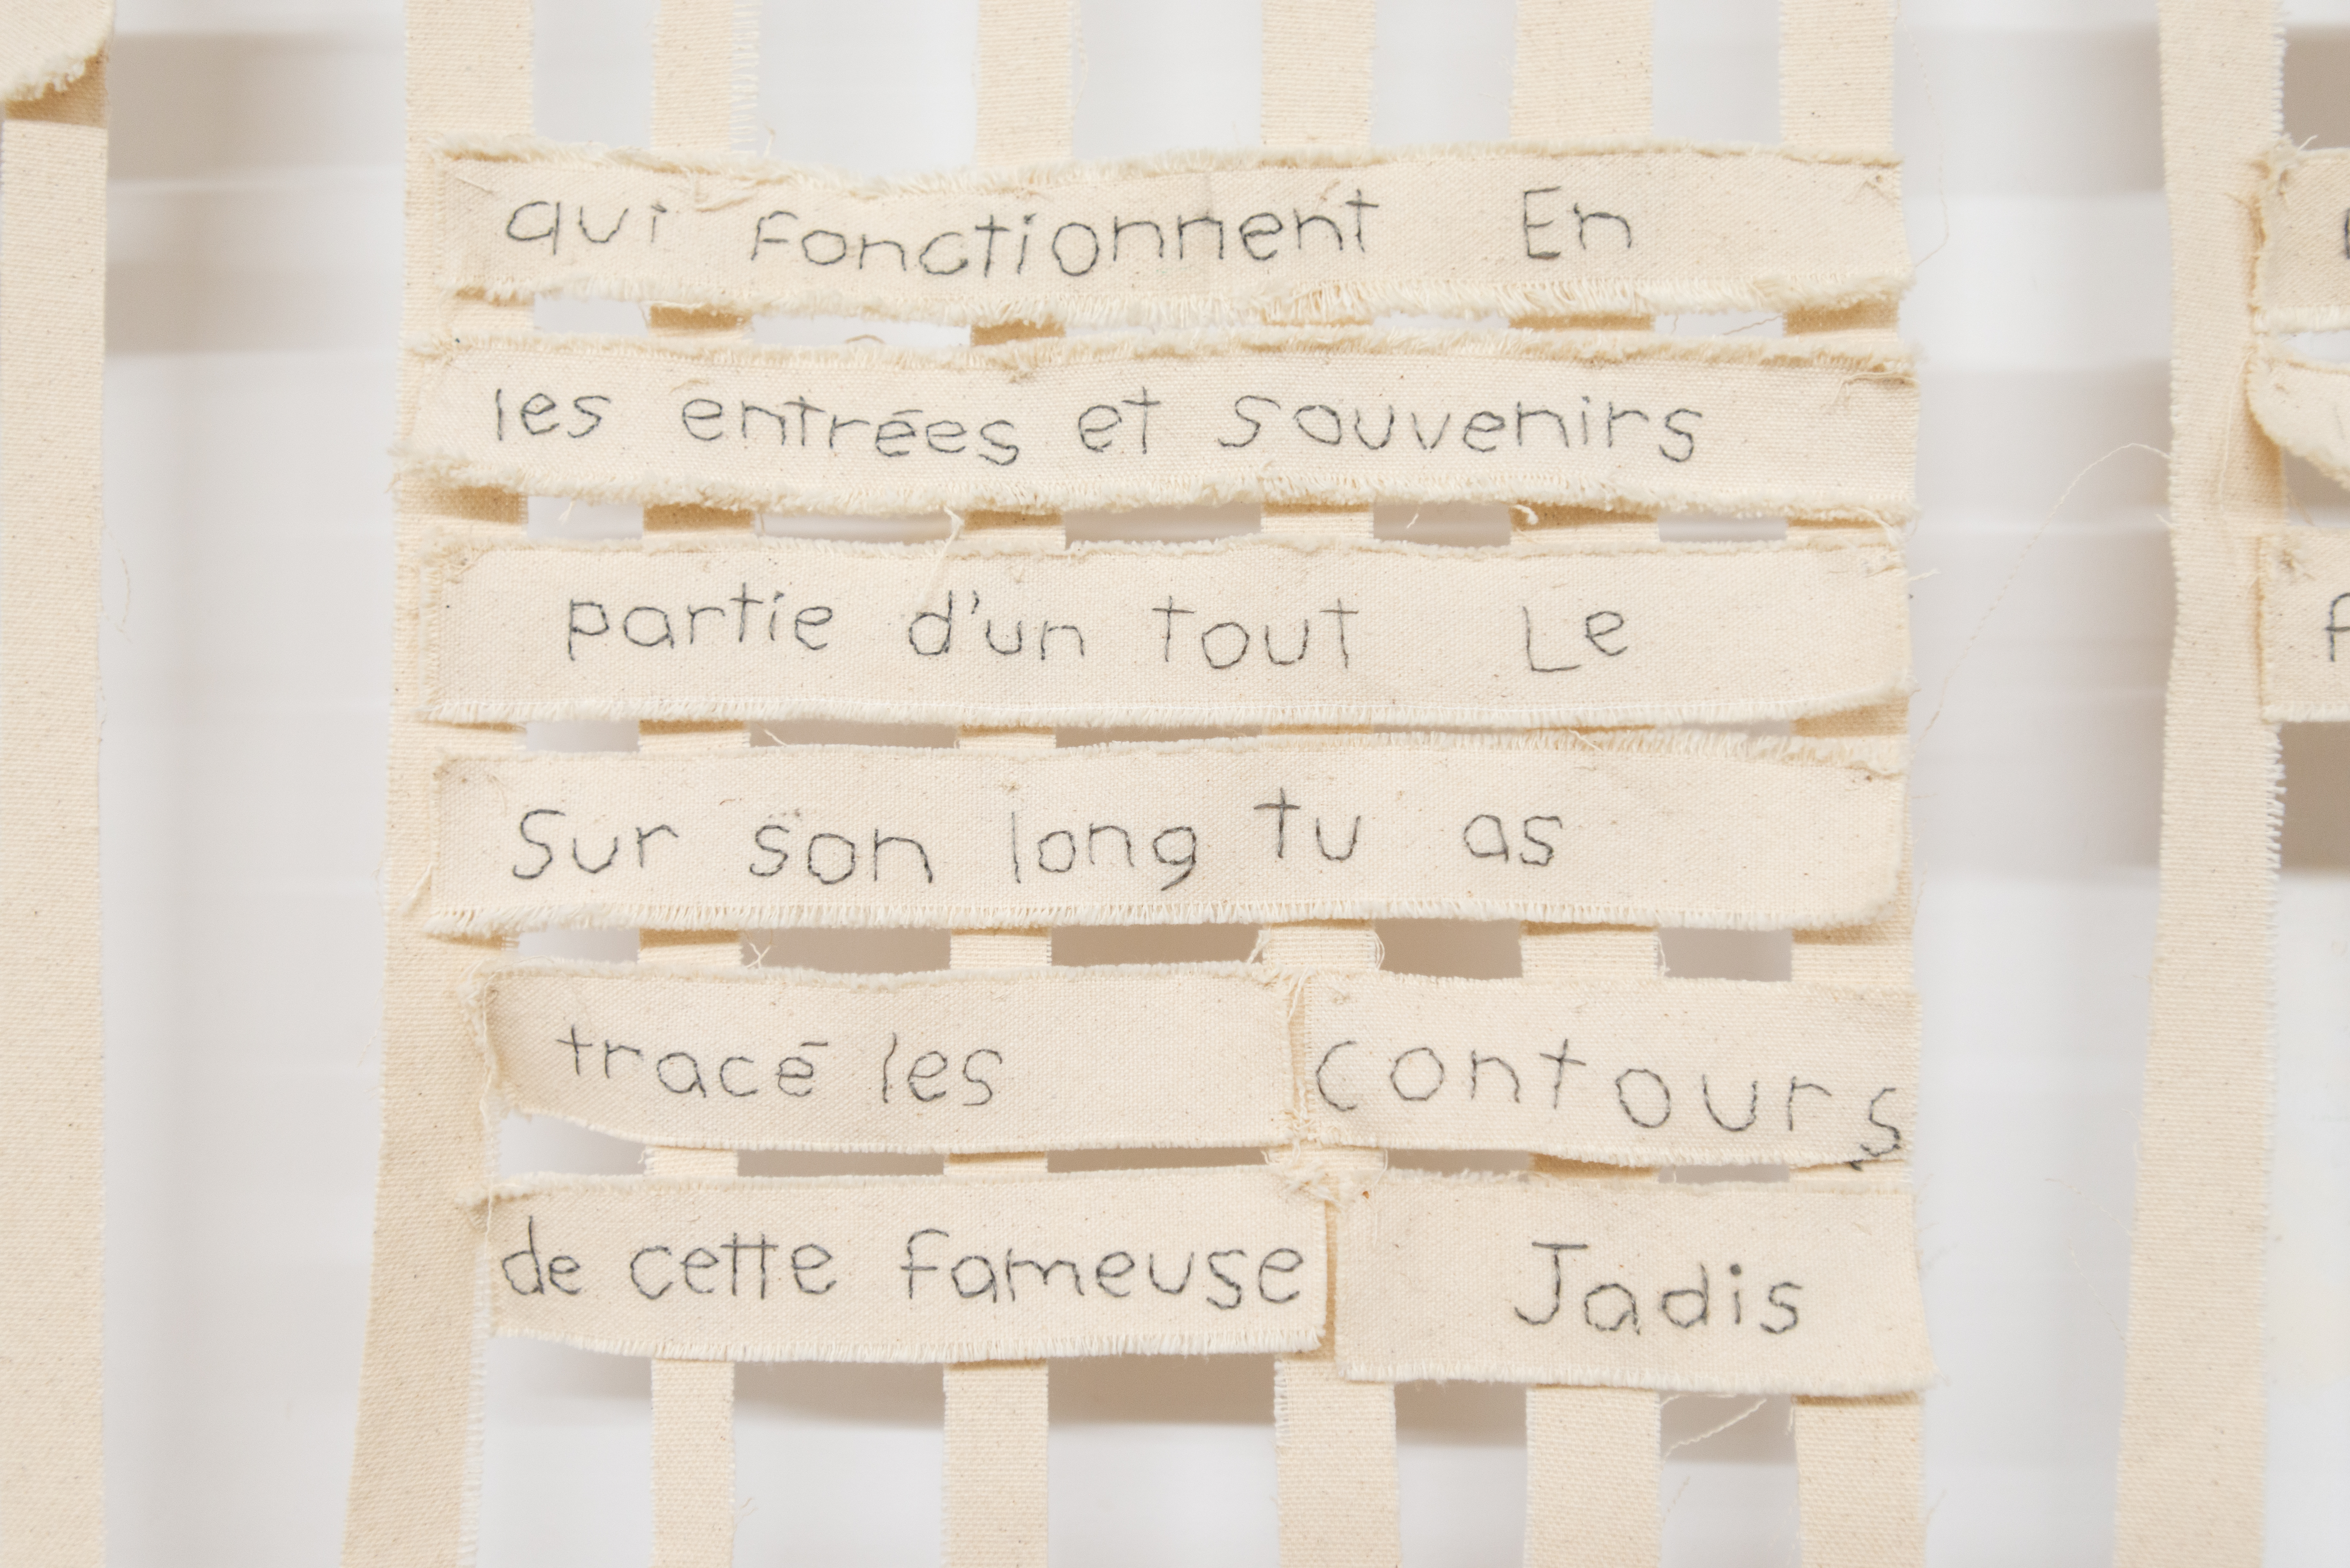 qui fonctionnent En
les entrées et souvenirs
partie d'un tout Le
Sur son long tu as
tracé les contours
de cette fameuse Jadis